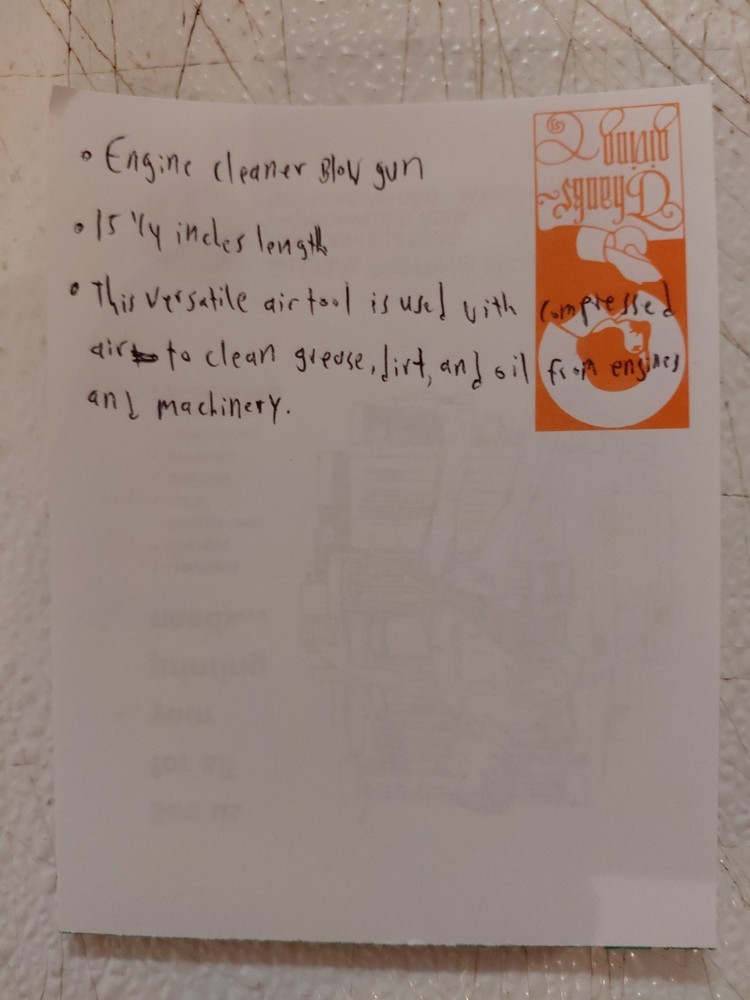 • Engine cleaner Blow gun
• 15 1/4 inches length
• This versatile air tool is used with compressed
air to clean grease, dirt, and oil from engines
and machinery.
Thanks~
for all
your
printing
needs...